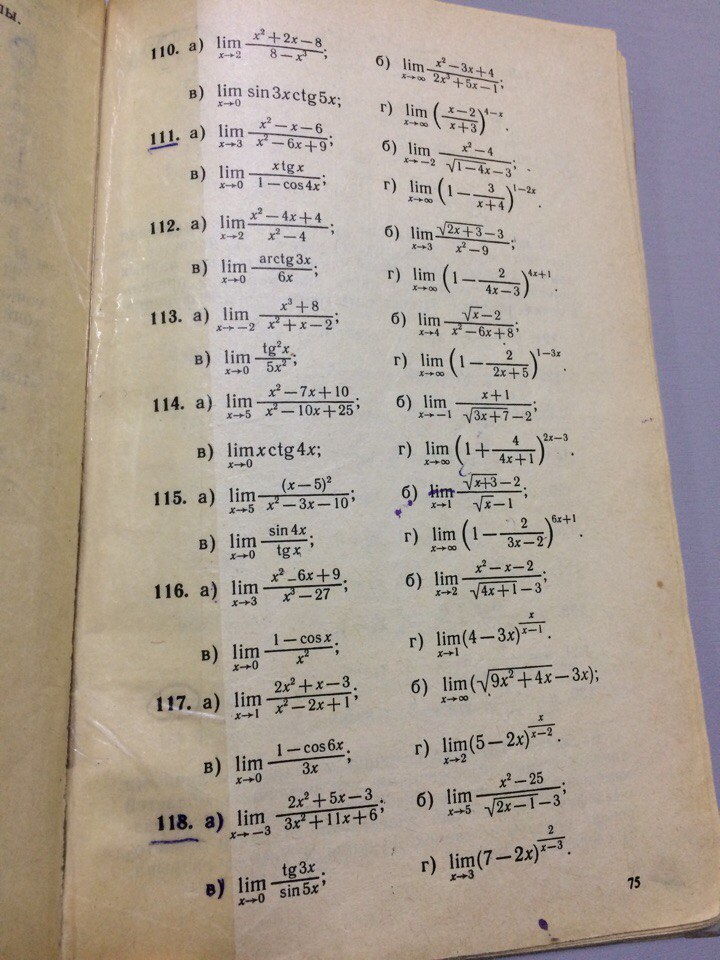 ы.
110. а) lim_{x→2} (x² + 2x − 8)/(8 − x³); б) lim_{x→∞} (x² − 3x + 4)/(2x³ + 5x − 1);
в) lim_{x→0} sin 3x ctg 5x; г) lim_{x→∞} ((x − 2)/(x + 3))^{4−x}.
111. а) lim_{x→3} (x² − x − 6)/(x² − 6x + 9); б) lim_{x→−2} (x² − 4)/(√(1 − 4x) − 3);
в) lim_{x→0} (x tg x)/(1 − cos 4x); г) lim_{x→∞} (1 − 3/(x + 4))^{1−2x}.
112. а) lim_{x→2} (x² − 4x + 4)/(x² − 4); б) lim_{x→3} (√(2x + 3) − 3)/(x² − 9);
в) lim_{x→0} (arctg 3x)/(6x); г) lim_{x→∞} (1 − 2/(4x − 3))^{4x+1}.
113. а) lim_{x→−2} (x³ + 8)/(x² + x − 2); б) lim_{x→4} (√x − 2)/(x² − 6x + 8);
в) lim_{x→0} (tg² x)/(5x²); г) lim_{x→∞} (1 − 2/(2x + 5))^{1−3x}.
114. а) lim_{x→5} (x² − 7x + 10)/(x² − 10x + 25); б) lim_{x→−1} (x + 1)/(√(3x + 7) − 2);
в) lim_{x→0} x ctg 4x; г) lim_{x→∞} (1 + 4/(4x + 1))^{2x−3}.
115. а) lim_{x→5} (x − 5)²/(x² − 3x − 10); б) lim_{x→1} (√(x + 3) − 2)/(√x − 1);
в) lim_{x→0} (sin 4x)/(tg x); г) lim_{x→∞} (1 − 2/(3x − 2))^{6x+1}.
116. а) lim_{x→3} (x² − 6x + 9)/(x³ − 27); б) lim_{x→2} (x² − x − 2)/(√(4x + 1) − 3);
в) lim_{x→0} (1 − cos x)/x²; г) lim_{x→1} (4 − 3x)^{x/(x−1)}.
117. а) lim_{x→1} (2x² + x − 3)/(x² − 2x + 1); б) lim_{x→∞} (√(9x² + 4x) − 3x);
в) lim_{x→0} (1 − cos 6x)/(3x); г) lim_{x→2} (5 − 2x)^{x/(x−2)}.
118. а) lim_{x→−3} (2x² + 5x − 3)/(3x² + 11x + 6); б) lim_{x→5} (x² − 25)/(√(2x − 1) − 3);
в) lim_{x→0} (tg 3x)/(sin 5x); г) lim_{x→3} (7 − 2x)^{2/(x−3)}.
75